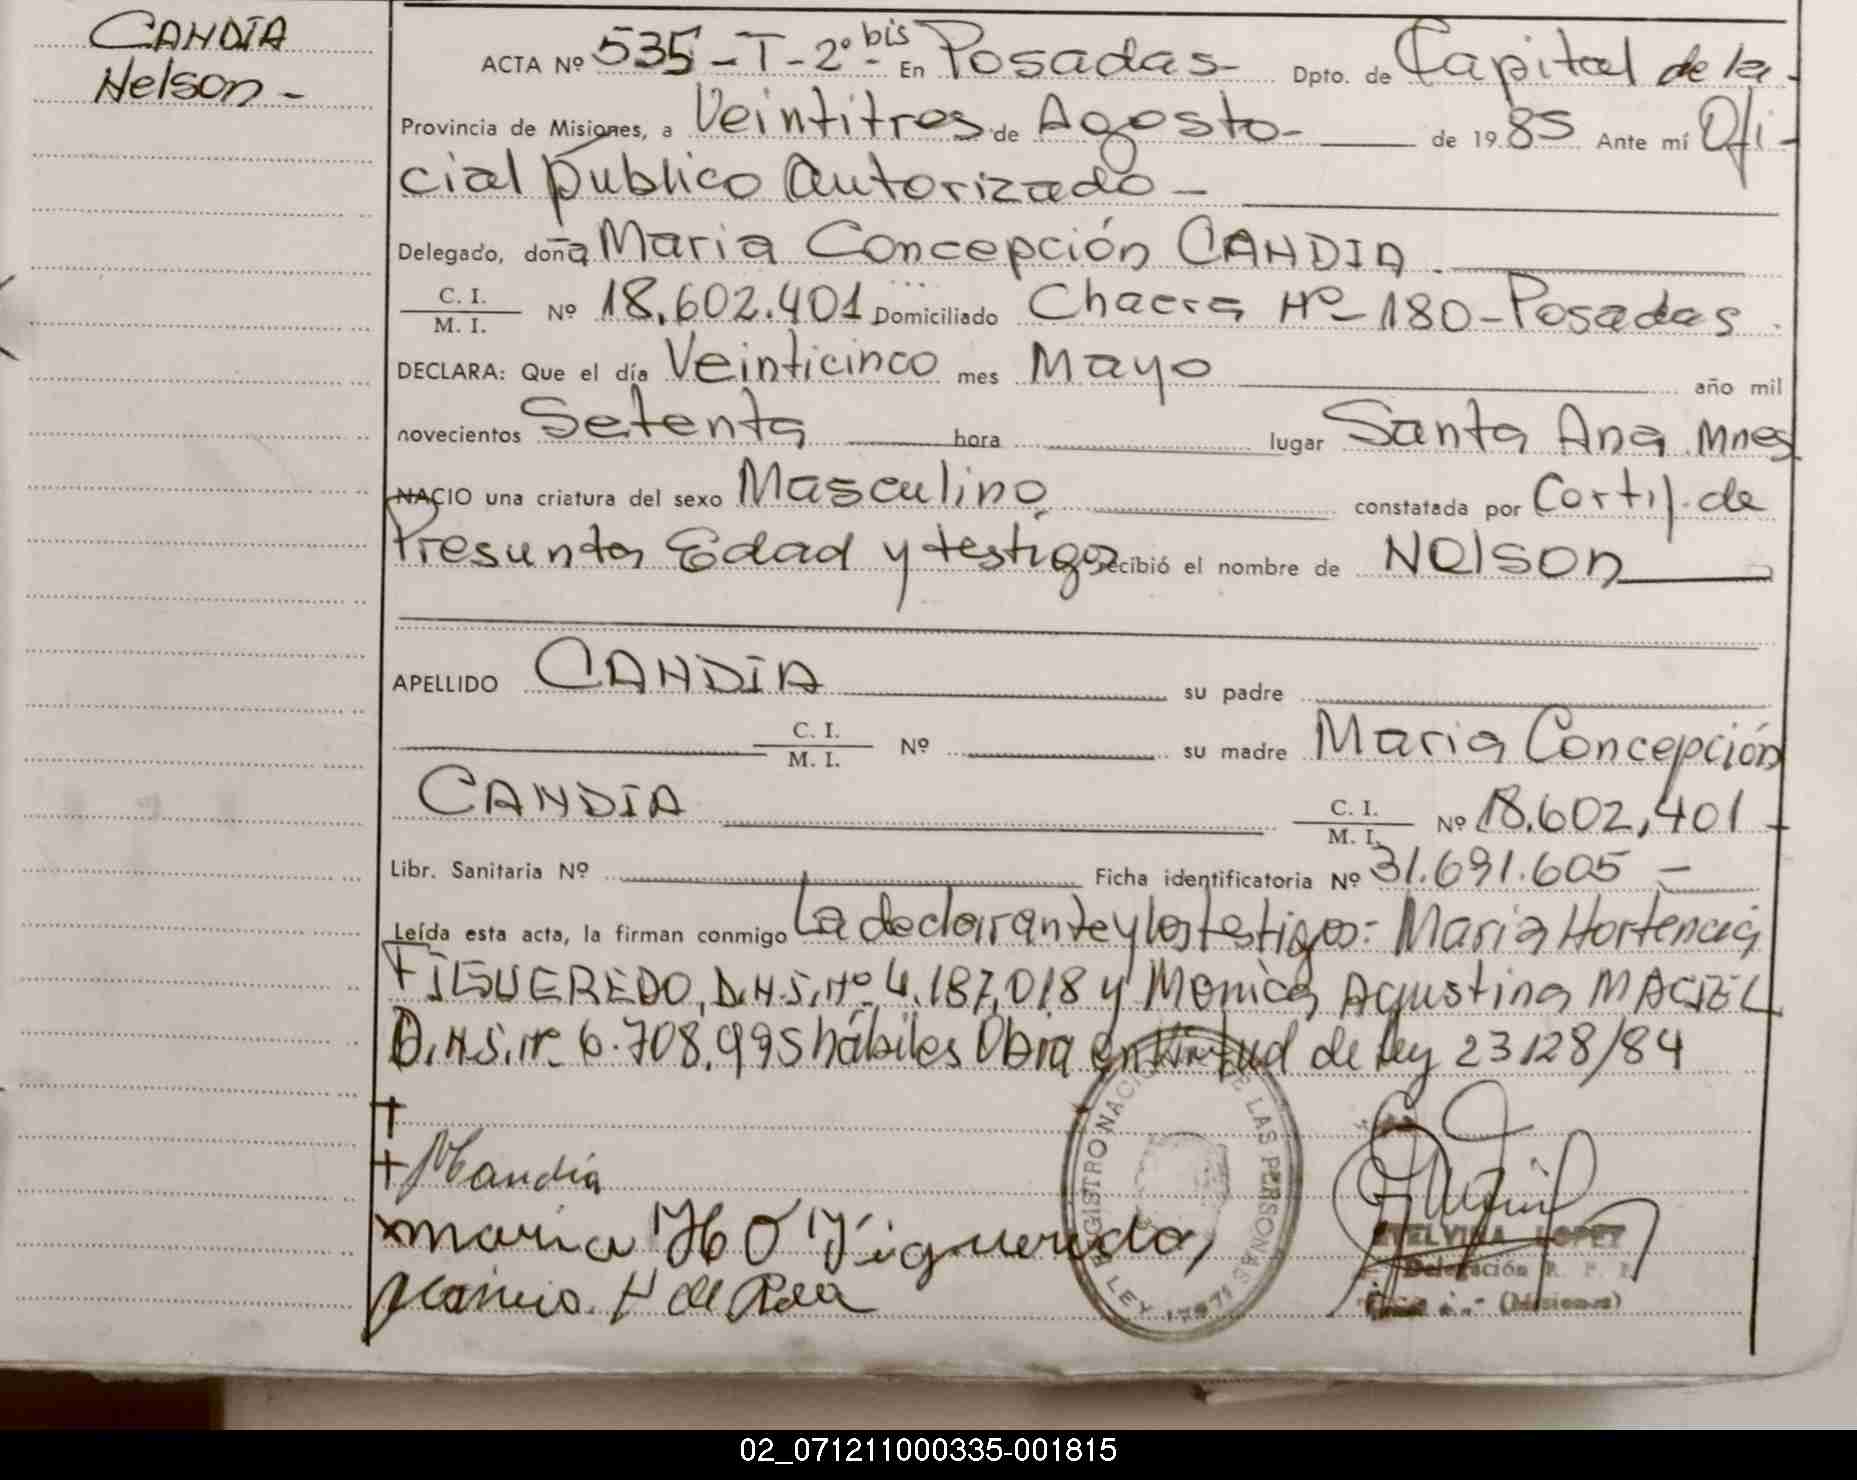 CANDIA
Nelson -
ACTA Nº 535 - T - 2º bis En Posadas - Dpto. de Capital de la -
Provincia de Misiones, a Veintitres de Agosto - de 1985 Ante mí Ofi-
cial público autorizado -
Delegado, doña Maria Concepción CANDIA.
C. I.
M. I. Nº 18.602.401 Domiciliado Chacra Nº - 180 - Posadas.
DECLARA: Que el día Veinticinco mes Mayo año mil
novecientos Setenta hora lugar Santa Ana Mnes
NACIO una criatura del sexo Masculino constatada por Certif. de
Presunta Edad y testigos recibió el nombre de Nelson
APELLIDO CANDIA su padre
C. I.
M. I. Nº su madre Maria Concepción
CANDIA C. I.
M. I. Nº 18.602.401 -
Libr. Sanitaria Nº Ficha identificatoria Nº 31.691.605 -
Leída esta acta, la firman conmigo La declarante y los testigos: Maria Hortencia
FIGUEREDO, D.N.I. Nº 4.187.018 y Monica Agustina MACIEL
D.N.I. Nº 6.708.995 hábiles Obra en virtud de ley 23128/84
Candia
maria H Figueredo
REGISTRO NACIONAL DE LAS PERSONAS
LEY 17671
ETELVINA LOPEZ
Delegación R. P. P.
(Misiones)
02_071211000335-001815